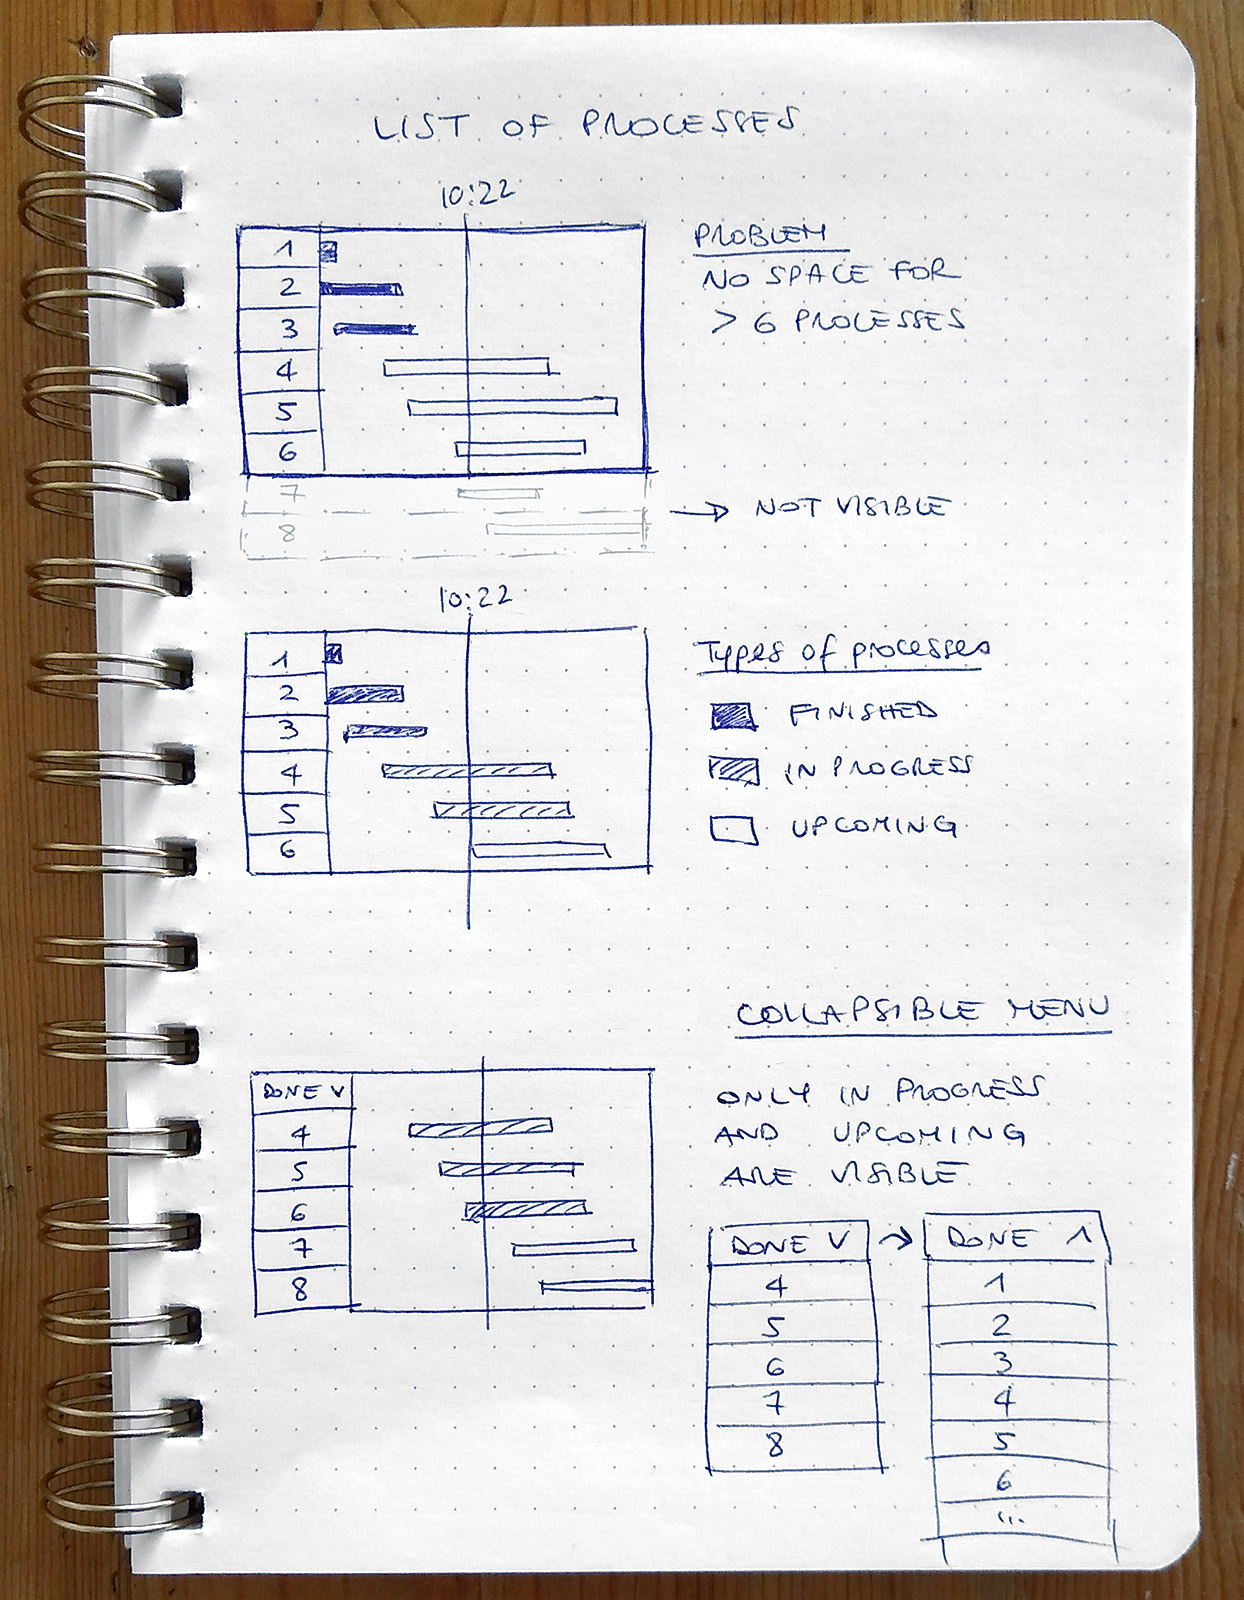 LIST OF PROCESSES
10:22
1
2
3
4
5
6
7
8
PROBLEM
NO SPACE FOR
> 6 PROCESSES
→ NOT VISIBLE
10:22
1
2
3
4
5
6
Types of processes
FINISHED
IN PROGRESS
UPCOMING
COLLAPSIBLE MENU
DONE V
4
5
6
7
8
ONLY IN PROGRESS
AND UPCOMING
ARE VISIBLE
DONE V → DONE Λ
4
5
6
7
8
1
2
3
4
5
6
...